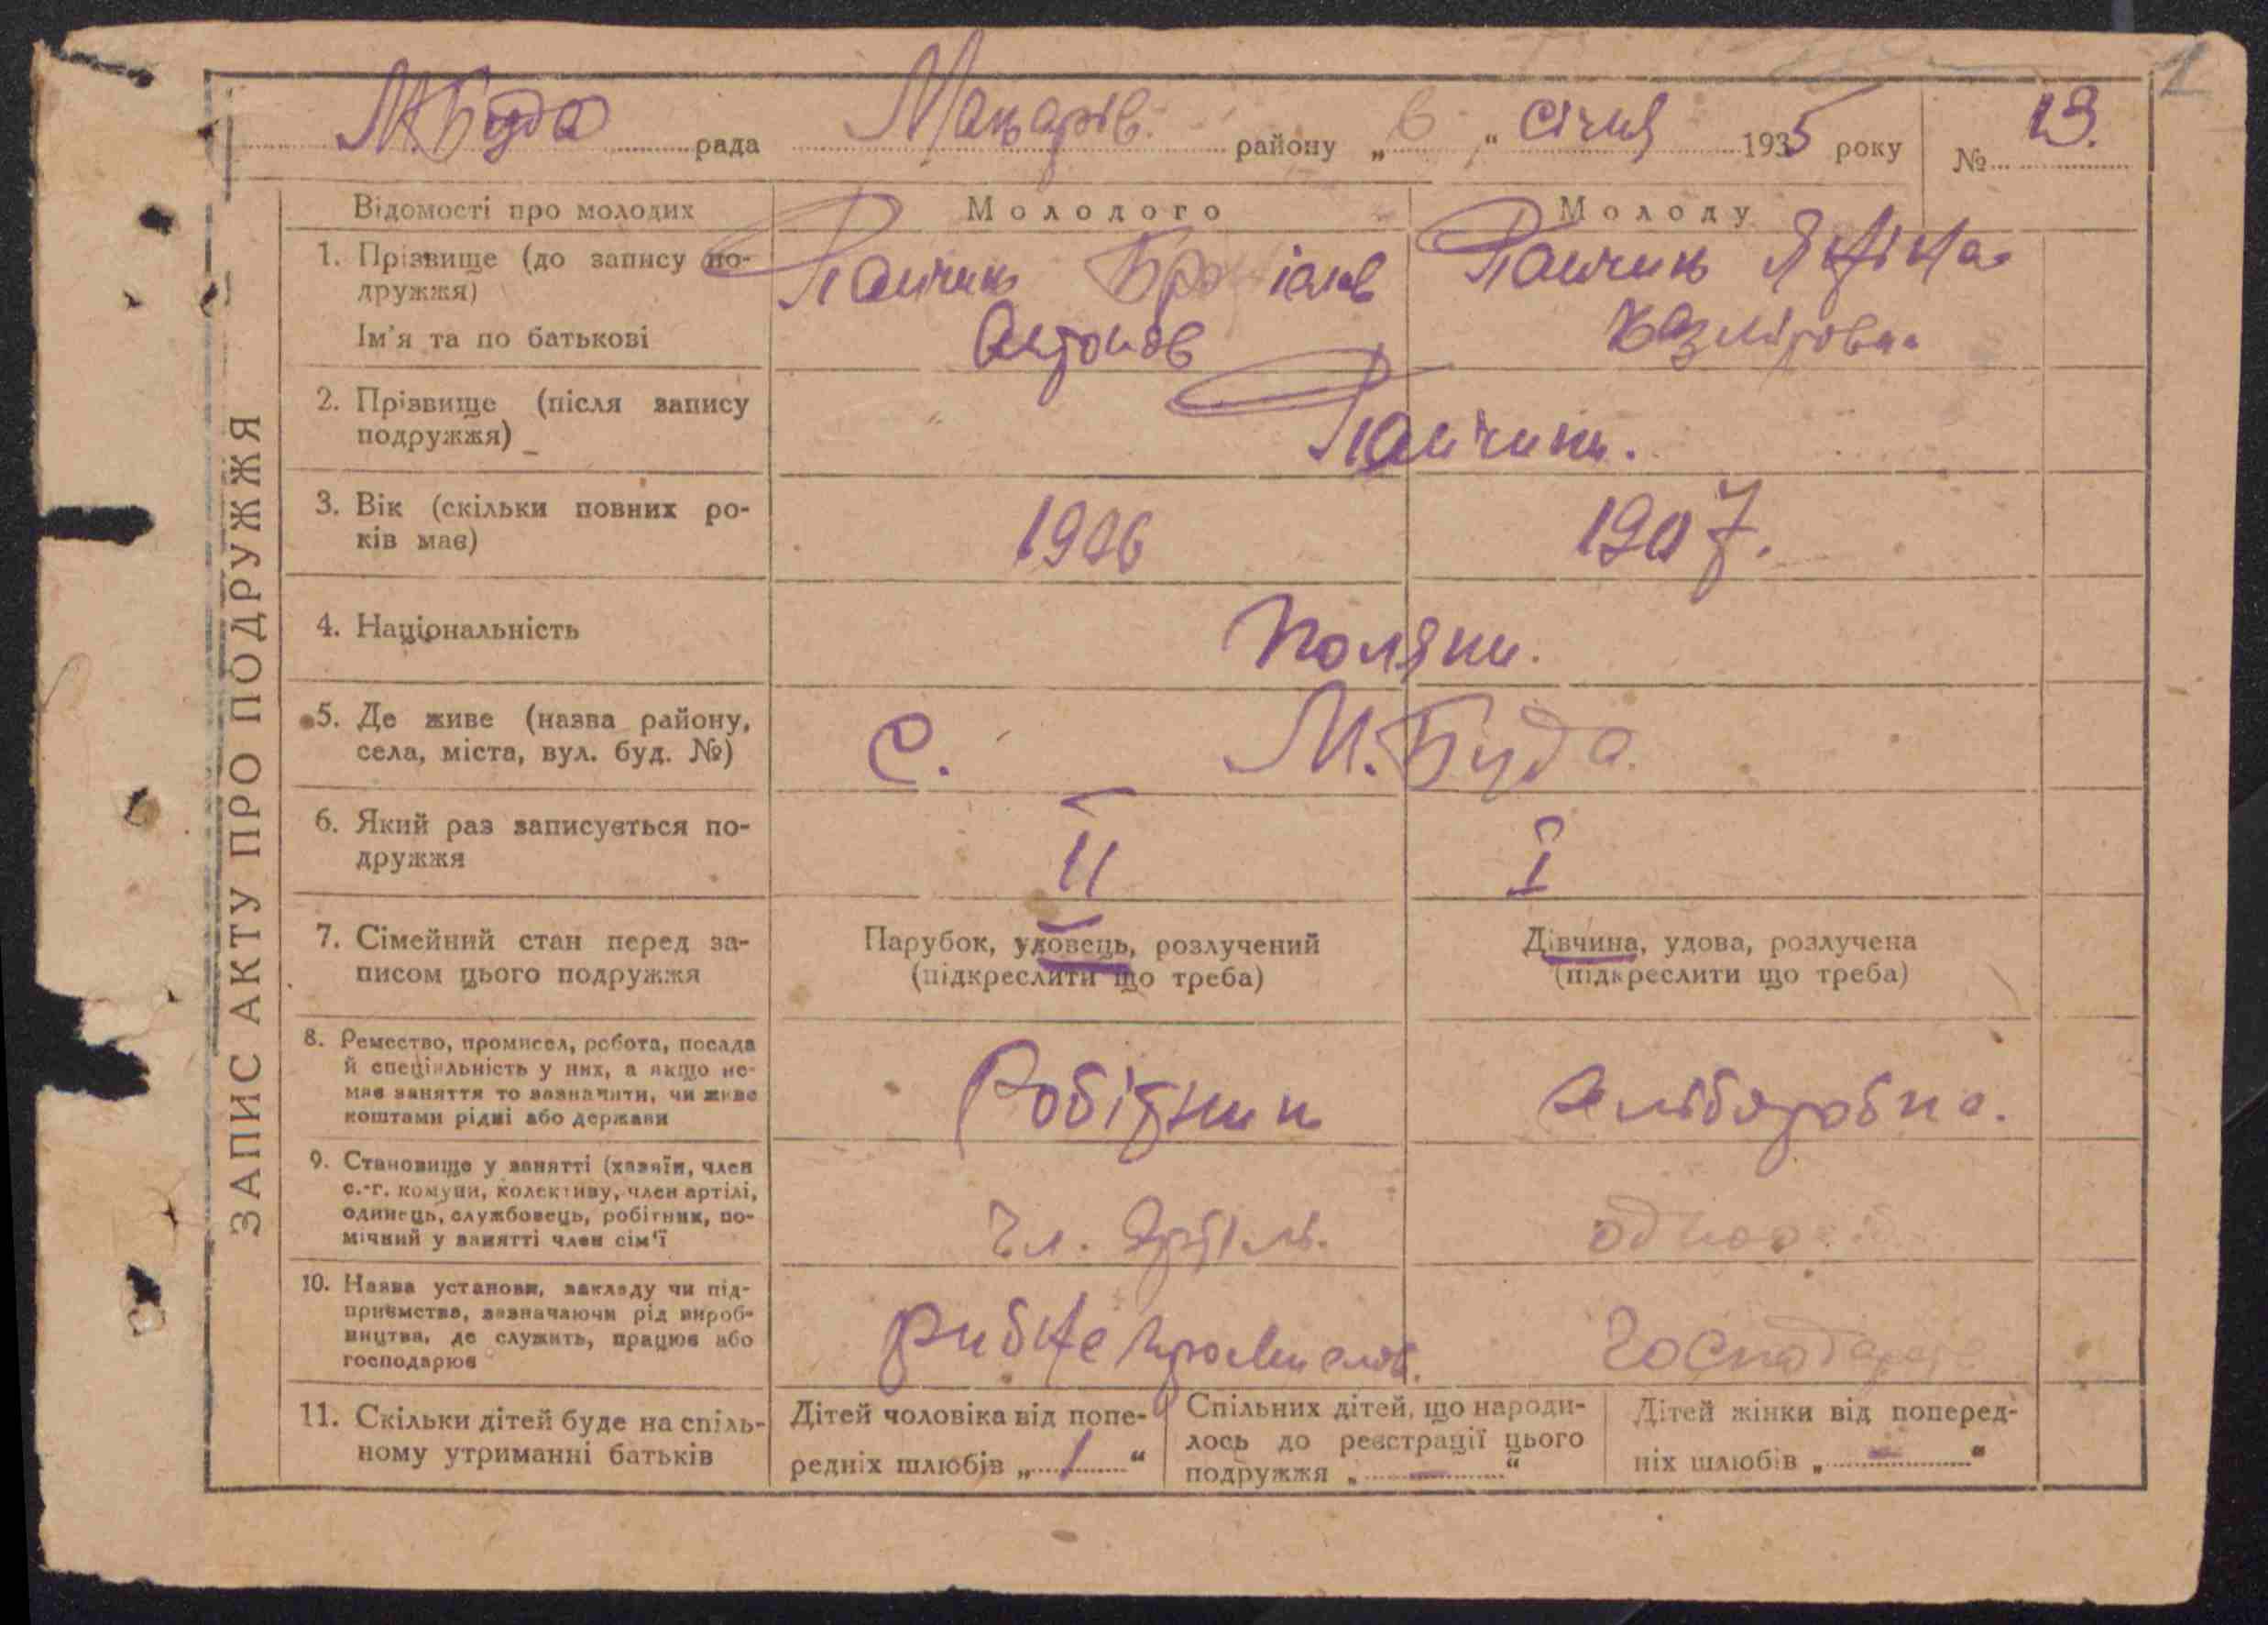 1
М.Буда рада Макарів. району „ 6 " січня 1935 року № 13.
ЗАПИС АКТУ ПРО ПОДРУЖЖЯ
Відомості про молодих
Молодого
Молоду
1. Прізвище (до запису по-
дружжя)
Ім'я та по батькові
Броніслав
Антонов
Яніна
Казміровна
2. Прізвище (після запису
подружжя)
3. Вік (скільки повних ро-
ків має)
1906
1907.
4. Національність
Поляки.
5. Де живе (назва району,
села, міста, вул. буд. №)
с. М.Буда.
6. Який раз записується по-
дружжя
II
I
7. Сімейний стан перед за-
писом цього подружжя
Парубок, удовець, розлучений
(підкреслити що треба)
Дівчина, удова, розлучена
(підкреслити що треба)
8. Ремество, промисел, робота, посада
й спеціяльність у них, а якщо не-
має заняття то зазначити, чи живе
коштами рідні або держави
Робітник
9. Становище у занятті (хазяїн, член
с.-г. комуни, колективу, член артілі,
одинець, службовець, робітник, по-
мічний у занятті член сім'ї
чл. Артіль.
10. Назва установи, закладу чи під-
приємства, зазначаючи рід вироб-
ництва, де служить, працює або
господарює
11. Скільки дітей буде на спіль-
ному утриманні батьків
Дітей чоловіка від попе-
редніх шлюбів „ 1 "
Спільних дітей, що народи-
лось до реєстрації цього
подружжя „ — "
Дітей жінки від поперед-
ніх шлюбів „ — "